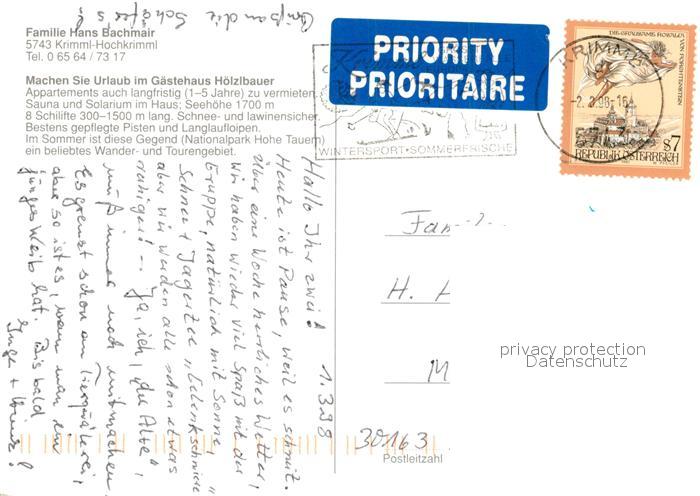 Grüßen die Schäfer's!
Familie Hans Bachmair
5743 Krimml-Hochkrimml
Tel. 0 65 64 / 73 17
Machen Sie Urlaub im Gästehaus Hölzlbauer
Appartements auch langfristig (1–5 Jahre) zu vermieten,
Sauna und Solarium im Haus; Seehöhe 1700 m
8 Schilifte 300–1500 m lang. Schnee- und lawinensicher.
Bestens gepflegte Pisten und Langlaufloipen.
Im Sommer ist diese Gegend (Nationalpark Hohe Tauern)
ein beliebtes Wander- und Tourengebiet.
PRIORITY
PRIORITAIRE
WINTERSPORT·SOMMERFRISCHE
KRIMML
-2.3.98-16
5743
DIE GRAUSAME ROSALIA
VON FORCHTENSTEIN
S7
REPUBLIK ÖSTERREICH
1.3.98
Hallo Ihr zwei!
Heute ist Pause, weil es schneit.
Über eine Woche herrliches Wetter,
wir haben wieder viel Spaß mit der
Gruppe, natürlich mit Sonne,
Schnee + Jagertee "Gelenkschmiere"
aber wir werden alle schon etwas
ruhiger! -- Ja, ich, "die Alte",
muß immer noch mitmachen.
Es grenzt schon an Tierquälerei,
aber so ist es, wenn man ein
junges Weib hat. Bis bald
Inge + Heinz!
Fam
H. H
M
30163
Postleitzahl
privacy protection
Datenschutz